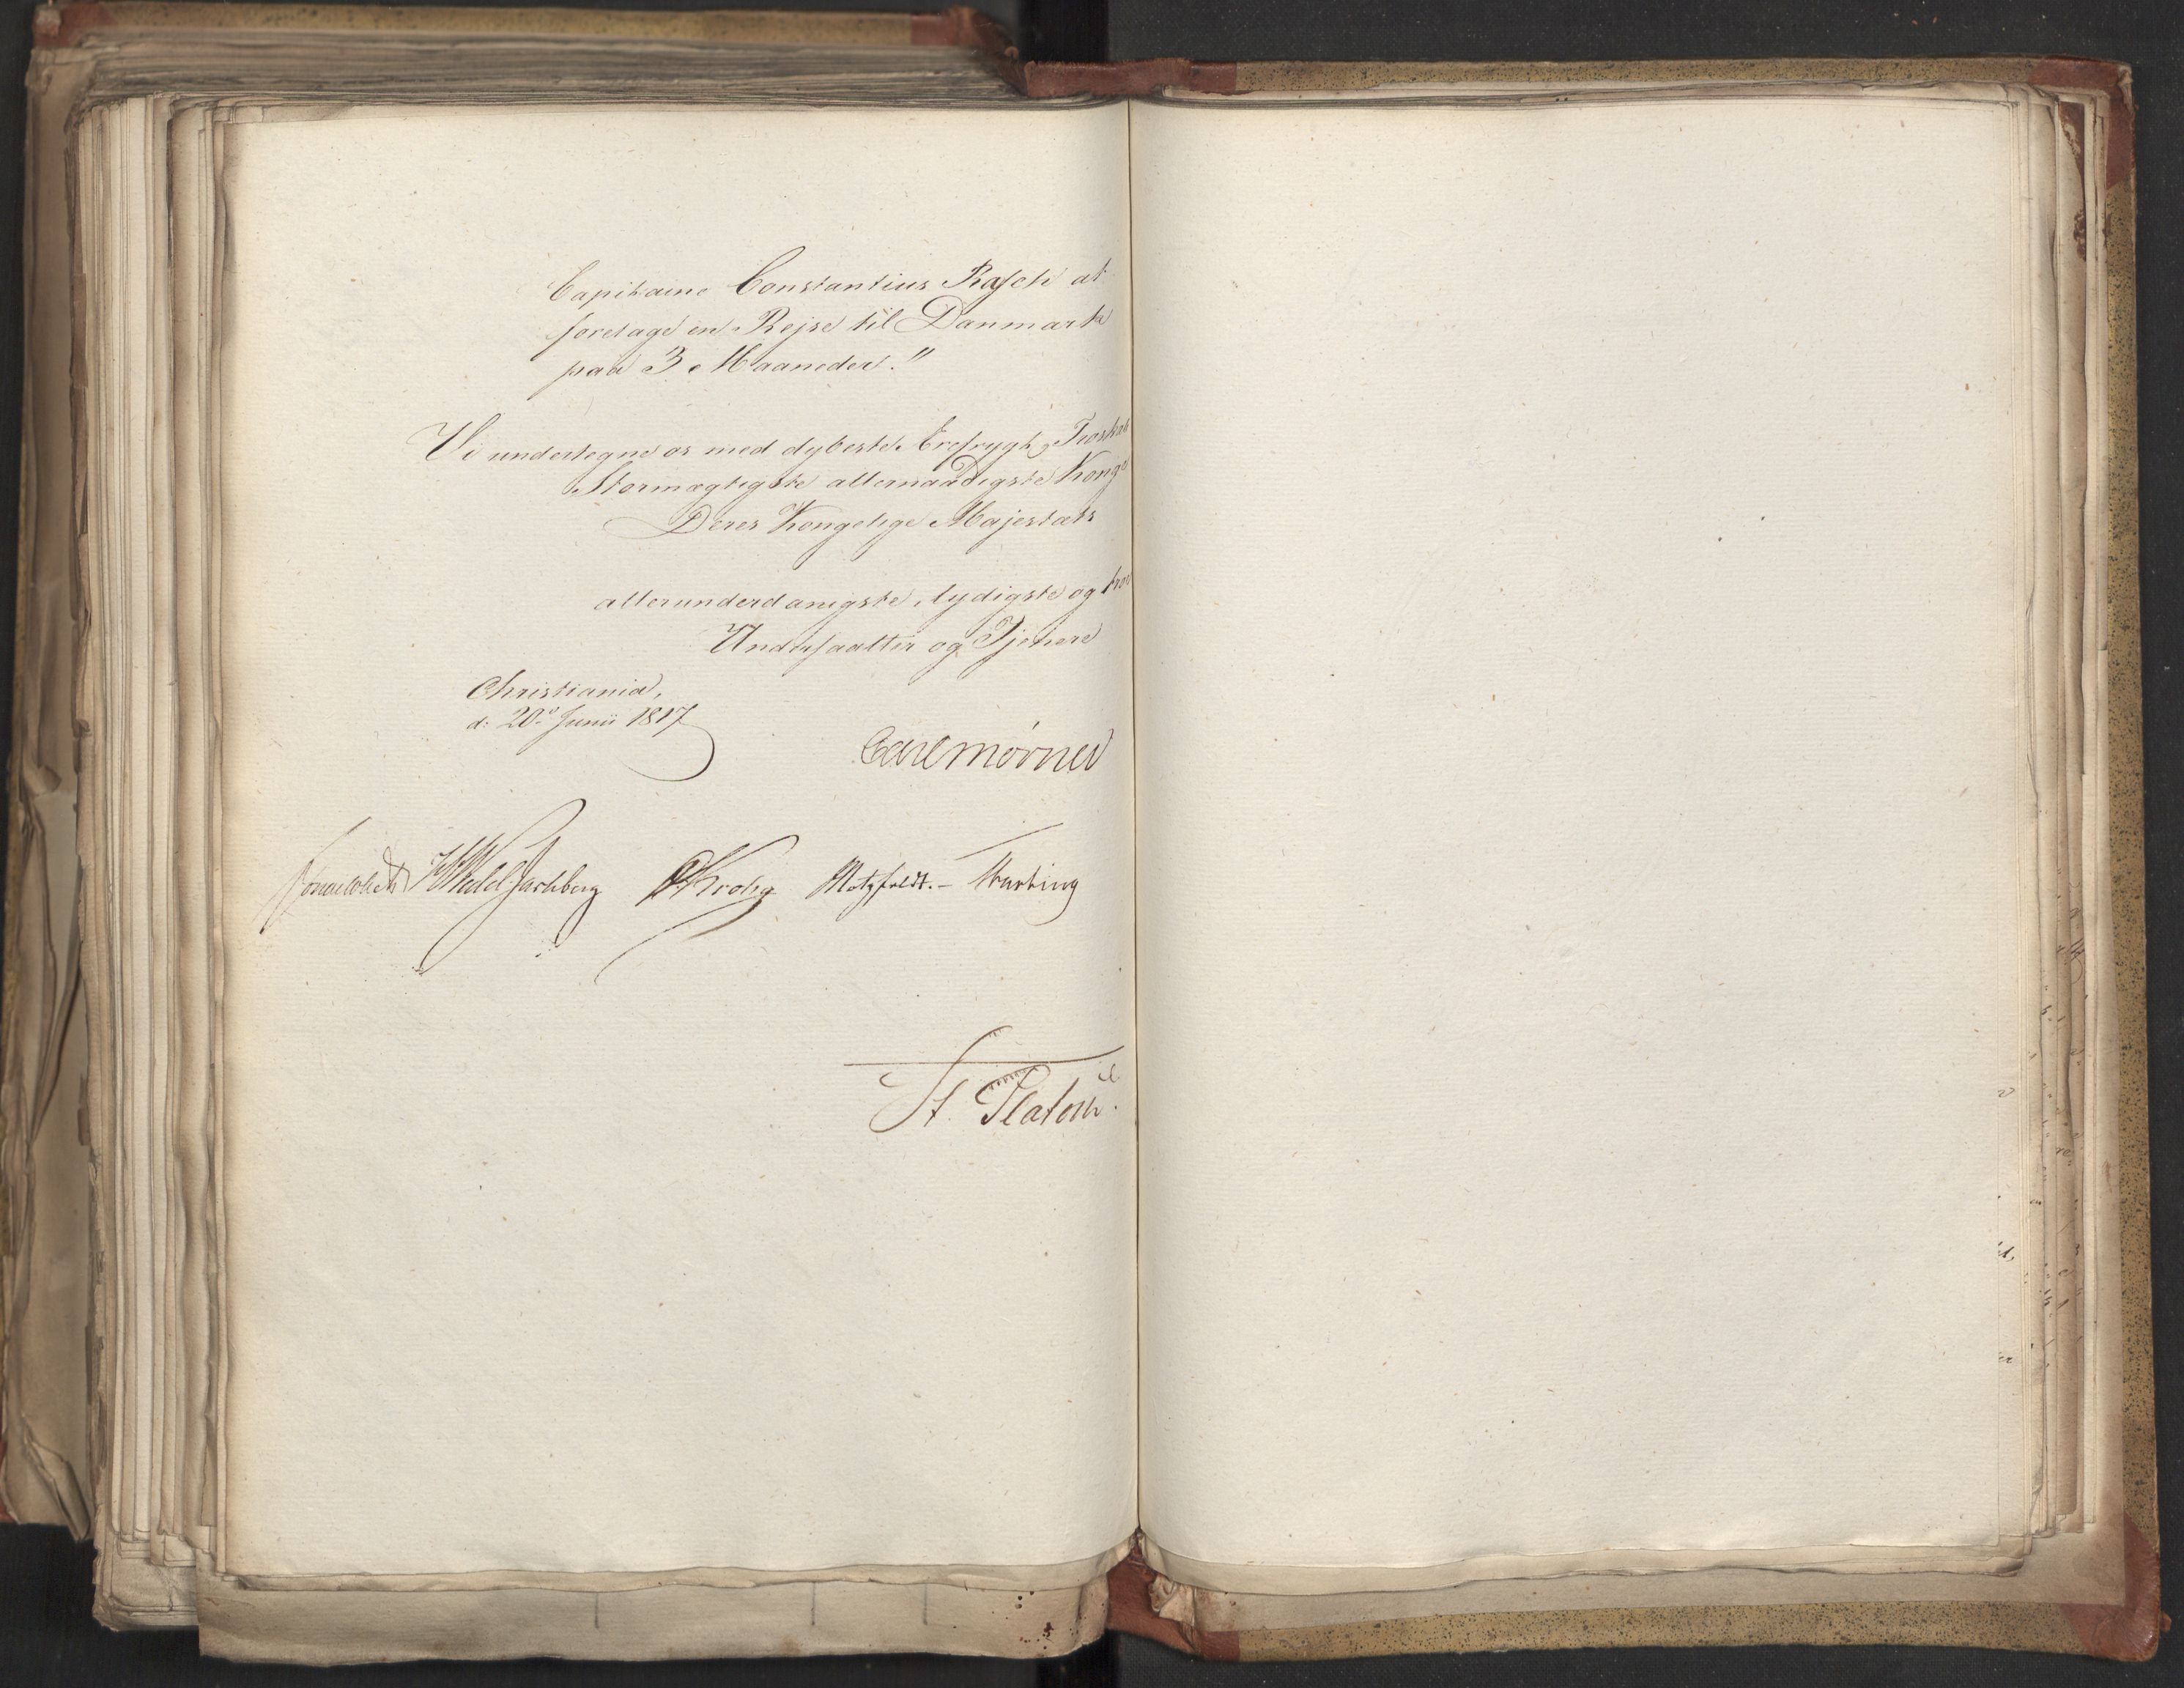 Capitaine Constantius Rasch at
foretage en Rejse til Danmark
paa 3 Maaneder."
Vi undertegne os med dybeste Ærefrygt, Troskab
Stormægtigste allernaadigste Konge
Deres Kongelige Majestæts
allerunderdanigste, lydigste og troe
Undersaatter og Tjenere
Christiania,
d: 20de Junii 1817
Carl Mörner
Sommerhielm HWedel-Jarlsberg CKrohg Motzfeldt. -
St. Platou